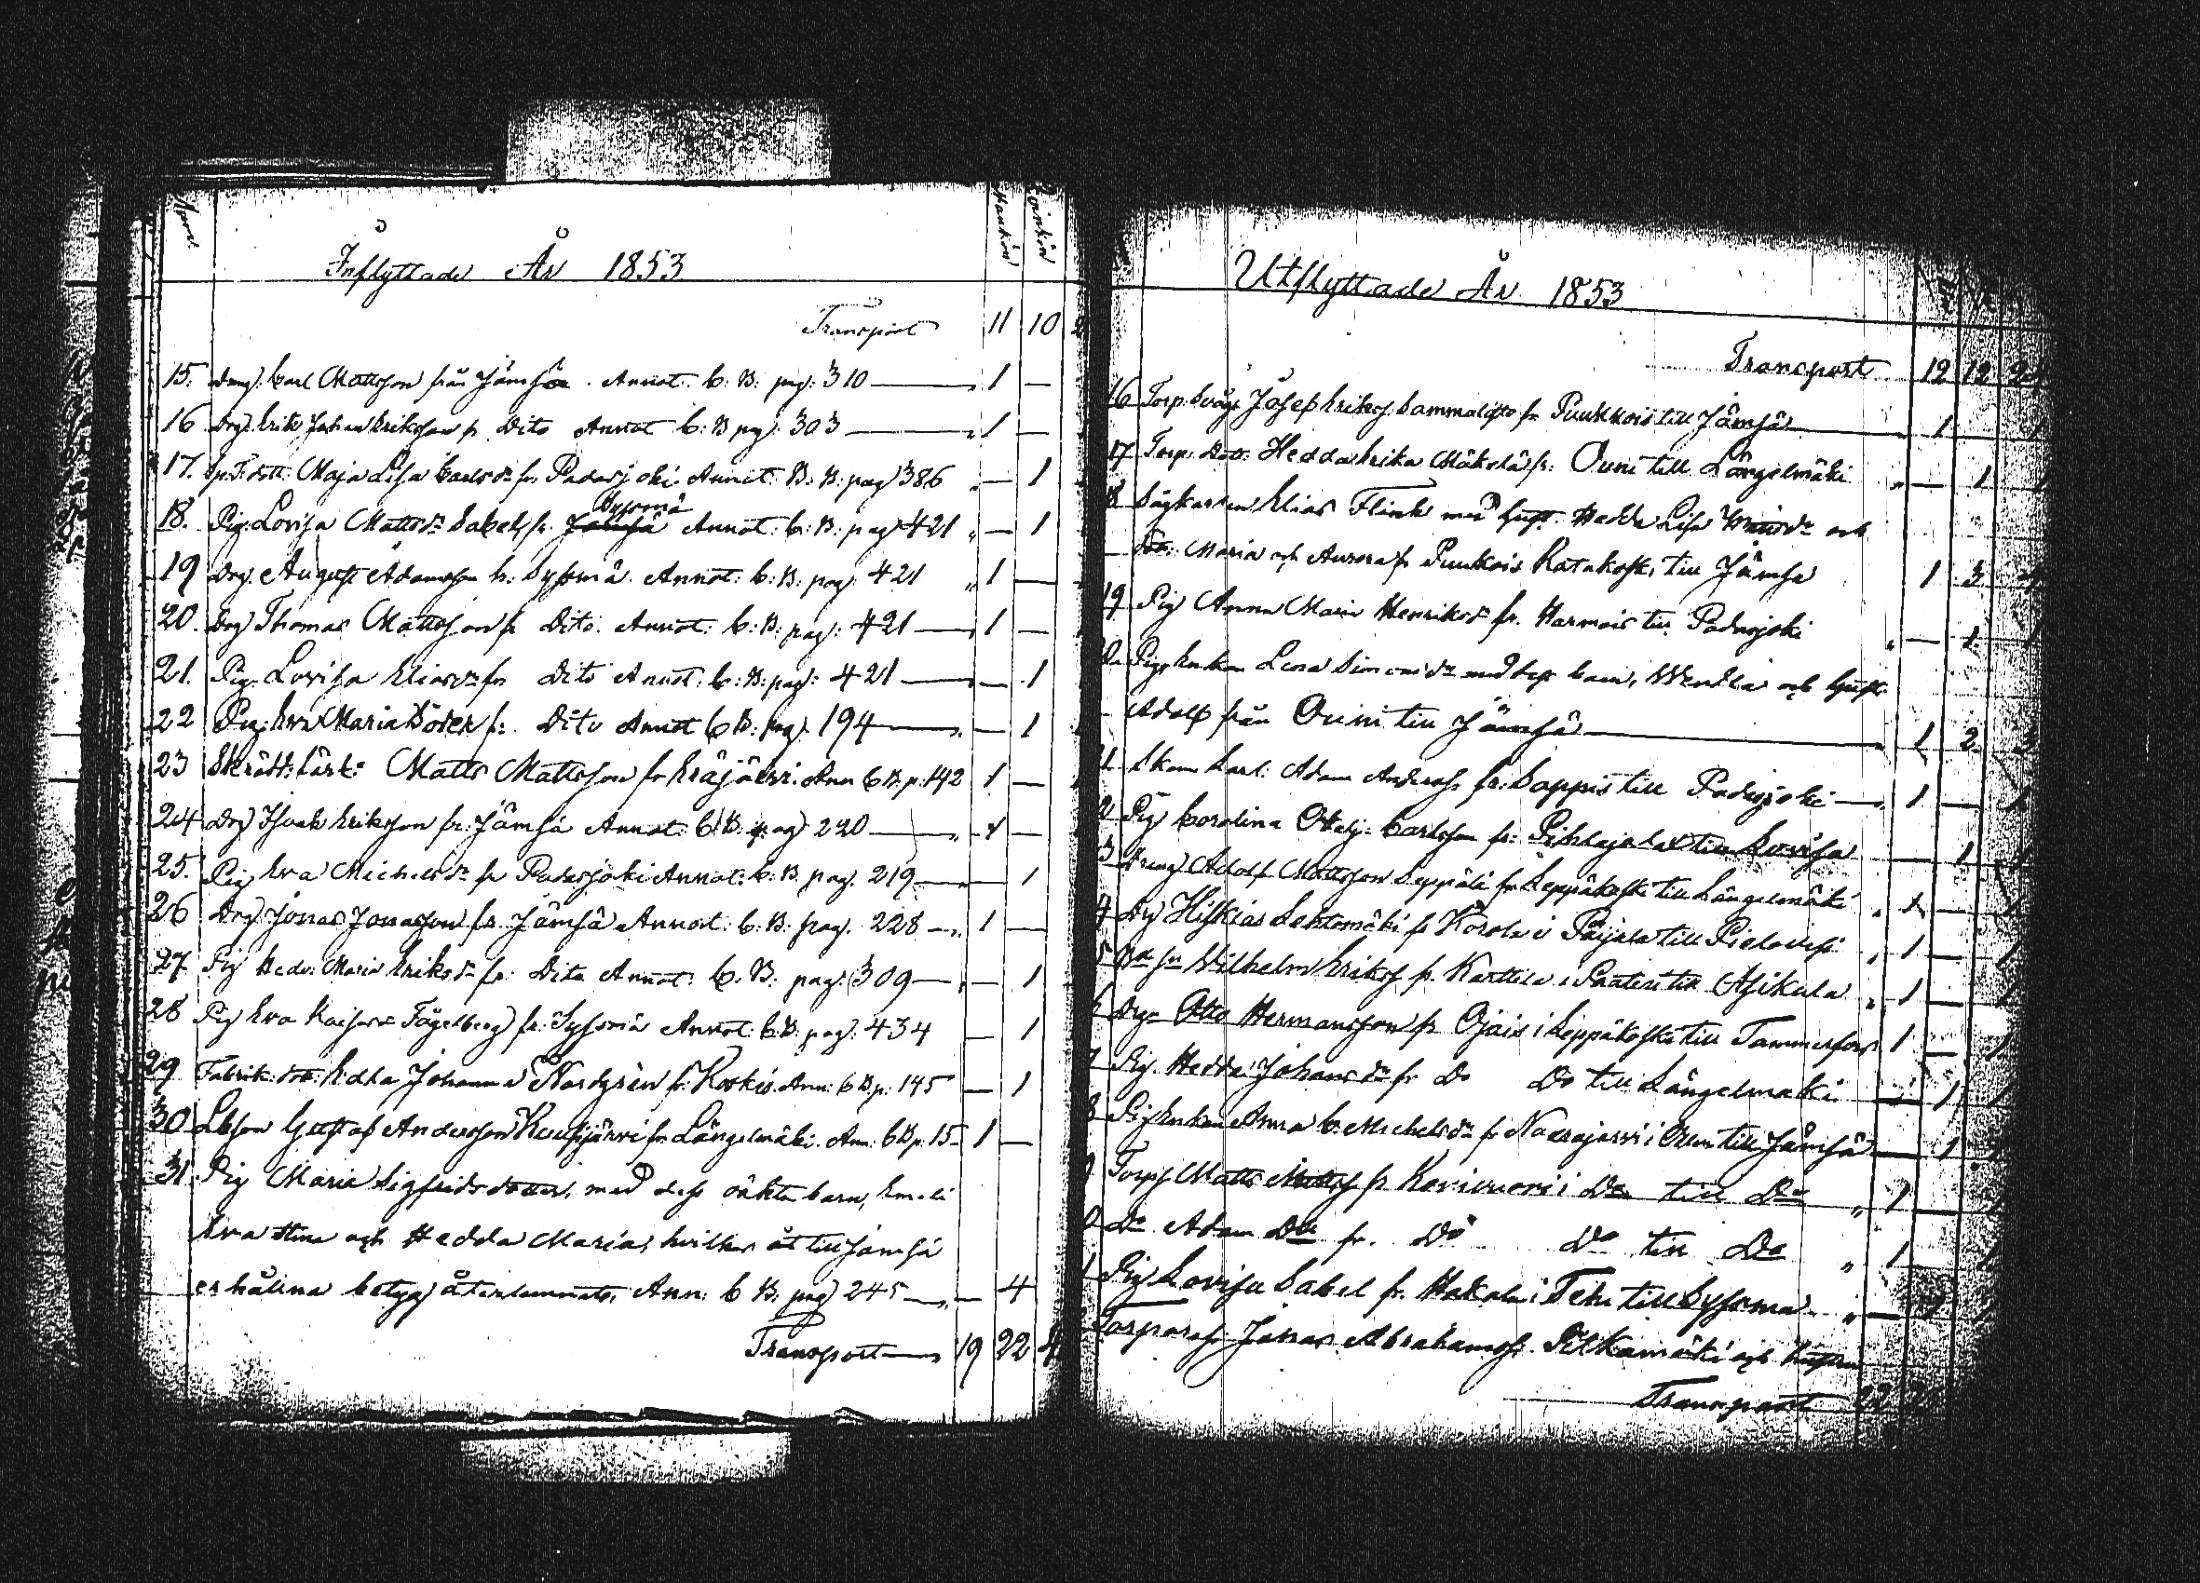 Mankön Qvinkön
Inflyttade År 1853
Transport 11 10
15. Dräng. Carl Mattsson från Jämsä. Annot: C: B: pag: 310 — 1 —
16 Drg. Erik Johan Eriksson fr. Dito Annot C: B pag: 303 — 1 —
17. Maja Lisa Carlsdr fr. Padasjoki Annot: B: pag 386 — 1
Sysmä
18. Pig. Lovisa Mattsdr Sabel fr. Jämsä Annot: C: B: pag 421 — 1
19 Drg. August Adamsson fr. Sysmä. Annot: C: B: pag: 421 1 —
20. Drg Thomas Mattsson fr Dito. Annot: C: B: pag: 421 — 1 —
21. Pig. Lovisa Eliasdr fr Dito Annot: C: B: pag: 421 — 1
22 Pig: Eva Maria Söder fr. Dito Annot C B: pag. 194 — 1
23 Skrädd: Lärl: Matts Mattsson fr Eräjärvi. Ann C B. p. 142 1 —
24 Drg Isak Eriksson fr. Jämsä Annot: C: B: pag 220 — 1 —
25. Pig Eva Michelsdr fr Padasjoki Annot: C: B. pag. 219 — 1
26 Drg. Jonas Jonasson fr. Jämsä Annot: C: B: pag. 228 — 1 —
27 Pig Hedv: Maria Eriksdr fr: Dito Annot: C. B. pag: 309 — 1
28 Pig Eva Kajsa Fågelberg fr: Sysmä Annot: C B: pag: 434 — 1
29 Fabrik: dott: Edla Johanna Nordgrén fr: Koskis. Ann: C B p: 145 — 1
30 Gustaf Andersson fr. Längelmäki. Ann: C B p: 15 1 —
31. Pig Maria Sigfridsdotter, med dess oäkta barn, Emeli
Eva Stina och Hedda Maria, hvilkas åt till Jämsä
erhållna betyg återlemnats, Ann: C B: pag 245 — 4
Transport — 19 22
Utflyttade År 1853
Transport 12 12
16 Torp. Josef Eriksson Sammalisto fr Puukkois till Jämsä 1
17 Torp. Dott: Hedda Erika Mäkelä fr: Ouni till Längelmäki — 1
18 Elias Flink med hust. Hedda Lisa och
Dött: Maria och Aurora fr Puukois Ratakoski till Jämsä 1 3
19 Pig Anna Maria Henriksdr fr. Harmois till Padasjoki — 1
Pig. Enkan Lena Simonsdr med dess barn, Wendla och Gust:
Adolf från Ouni till Jämsä 1 2
Adam Anderss. fr: Sappis till Padasjoki — 1 —
Pig Carolina Carlsson fr: Pihlajalax till Lovisa 1
Dräng Adolf Mattsson Seppälä fr Seppäkoski till Längelmäki 1 —
4 Drg Hiskias Lehtomäki fr Korola i Päijälä till Pielavesi 1 —
5 Wilhelm Erikss fr. Karttila i till Asikala 1 —
6 Drg. Otto Hermansson fr Ojais i Seppäkoski till Tammerfors 1 —
7 Pig. Hedda Johansdr fr Do Do till Längelmäki — 1
8 Pig. Enkan Anna C. Michelsdr fr Naarajärvi i Ouni till Jämsä — 1
9 Matts Mattss fr i Do till Do 1 —
Do Adam Do fr. Do Do till Do 1
Pig Lovisa Sabel fr. Hakala i Tehi till Sysmä — 1
Jonas Abrahamss. Pitkämäki och hustrun
Transport 22